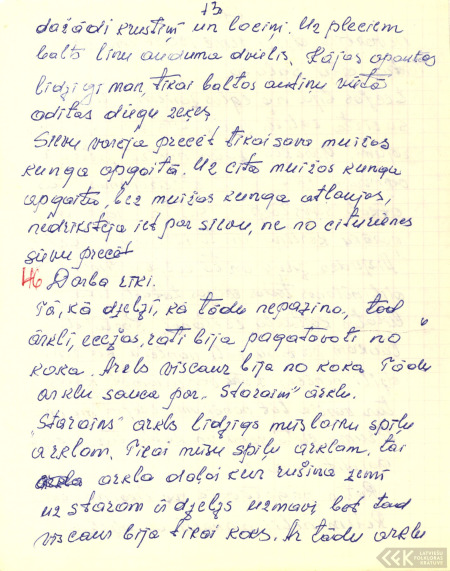 13
dažādi krustiņi un lociņi. Uz pleciem
balts linu auduma dvielis. Kājas apautas
līdzīgi man, tikai baltos autiņu vietā
adītas diegu zeķes
Sievu varēja precēt tikai sava muižas
kunga apgaitā. Uz cita muižas kunga
apgaitu, bez muižas kunga atļaujas,
nedrīkstēja iet par sievu, ne no citurienes
sievu precēt
46 Darba rīki.
Tā, kā dzelzi, kā tādu nepazina, tad
arkli, ecēžas, rati bija pagatavoti no
koka. Arkls viscaur bija no koka Tādu
arklu sauca par "Staraini" arklu.
"Starains" arkls līdzīgs mūslaiku spīļu
arklam. Tikai mūsu spīļu arklam, tai
arkla daļai kur rušina zemi
uz staram ir dzelzs uzmava bet tad
viscaur bija tikai koks. Ar tādu arklu
LATVIEŠU
FOLKLORAS
KRĀTUVE